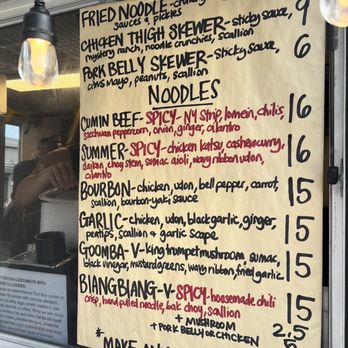 FRIED NOODLE-
sauces & pickles
CHICKEN THIGH SKEWER-sticky sauce, 9
mystery ranch, noodle crunchies, scallion
PORK BELLY SKEWER-sticky sauce, 6
citrus mayo, peanuts, scallion
NOODLES
CUMIN BEEF-SPICY-NY strip, lomein, chilis, 16
szechuan peppercorn, onion, ginger, cilantro
SUMMER-SPICY-chicken katsu, cashew curry, 16
daikon, choy stem, sumac aioli, wavy ribbon udon,
cilantro
BOURBON-chicken, udon, bell pepper, carrot, 15
scallion, bourbon-yaki sauce
GARLIC-chicken, udon, black garlic, ginger, 15
peatips, scallion & garlic scape
GOOMBA-V-king trumpet mushroom, sumac, 15
black vinegar, mustard greens, wavy ribbon, fried garlic
BIANGBIANG-V-SPICY-housemade chili 15
crisp, hand pulled noodle, bok choy, scallion
+ MUSHROOM 2.5
+ PORK BELLY OR CHICKEN 5
* MAKE AN
CUSTOMERS WITH
FOOD ALLERGIES